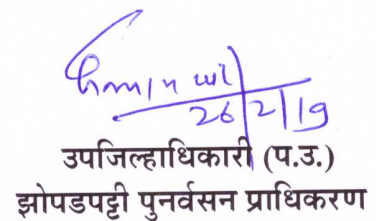 26/2/19
उपजिल्हाधिकारी (प.उ.)
झोपडपट्टी पुनर्वसन प्राधिकरण